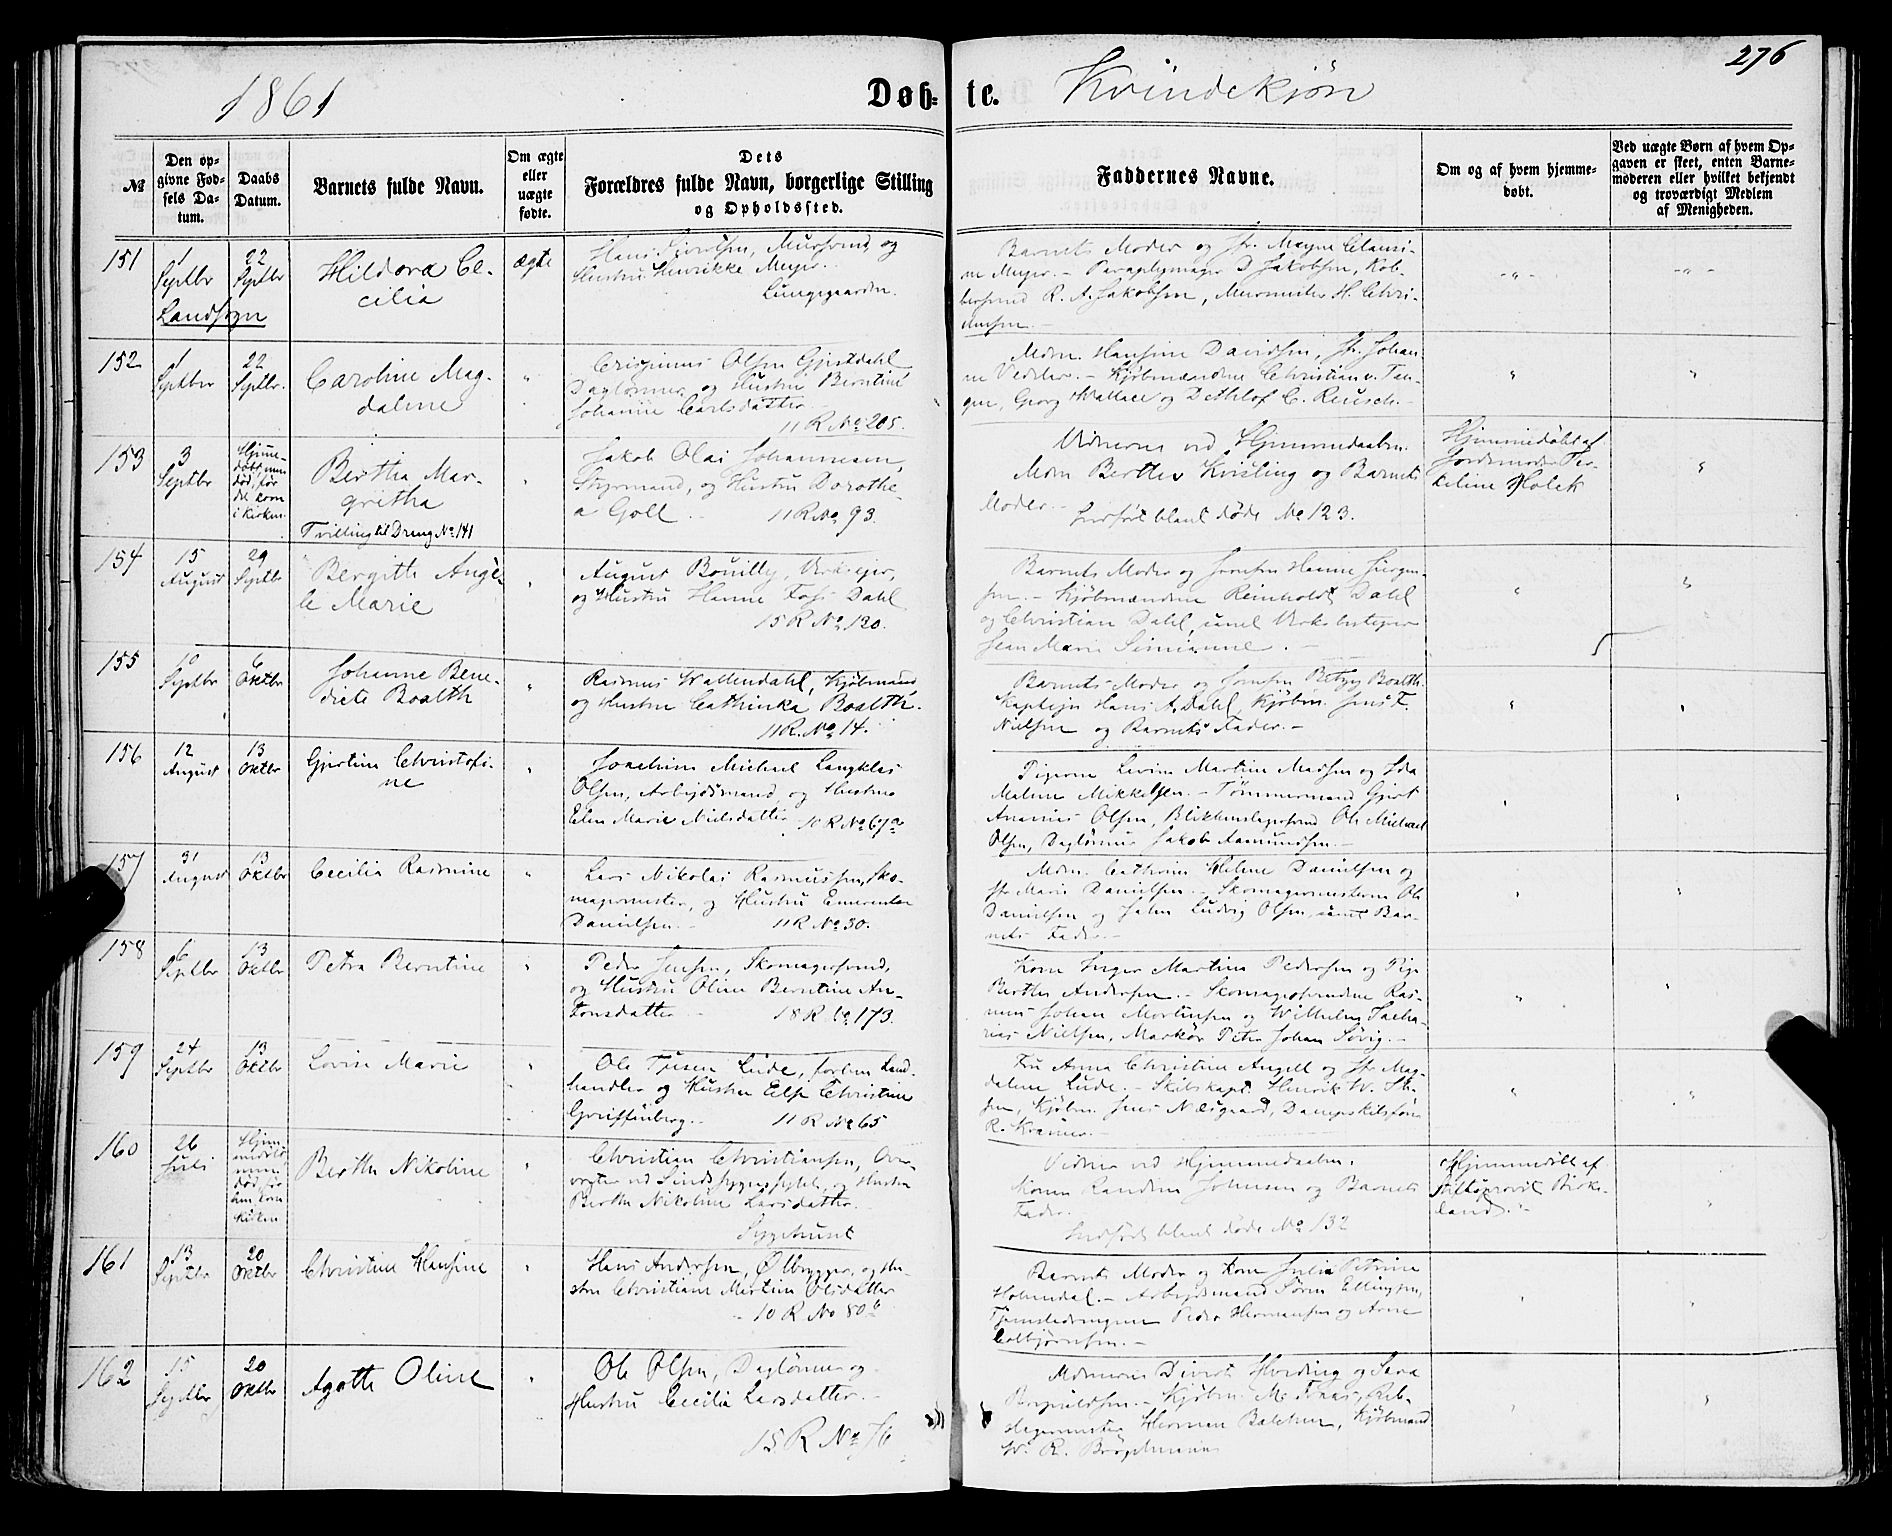 276
1861
Døb-
te. Kvindekjøn
№
Den op-
givne Fød-
sels Da-
tum.
Daabs
Datum.
Barnets fulde Navn.
Om ægte
eller
uægte
fødte.
Dets
Forældres fulde Navn, borgerlige Stilling
og Opholdssted.
Faddernes Navne.
Om og af hvem hjemme-
døbt.
Ved uægte Børn af hvem Op-
gaven er skeet, enten Barne-
moderen eller hvilket bekjendt
og troværdigt Medlem
af Menigheden.
151
1
Septbr
Landsogn
22
Septbr
Hildora Ce-
cilia
ægte
Hans Murssvend og
Hustru Henrikke Meyer.
Lungegaarden.
Barnets Moder og Jfr. Magne Clausi-
ne Meyer. - Paraplymager D Jakobsen, Kob-
bersvend R. A. Jakobsen, Murmester H. Chri-
stensen. -
152
1
Septbr
22
Septbr.
Caroline Mag-
dalene
Crispinus Olsen Gjestdahl
Daglønner, og Hustru Berntine
Johanne Carlsdatter.
11 R No 205.
Mdm. Hansine Davidsen, Jfr. Johan
ne Vedeler. - Kjøbmændene Christian v. Tan-
gen, Georg Wallace og Dethlof C. Reusch. -
153
3
Septbr
Hjemme-
døbt, men
død, før
det kom
i Kirken.
Bertha Mar-
gritha
Tvilling til Dreng No 141
Jakob Olai Johannesen,
Styrmand, og Hustru Dorothe-
a Goll. - 11 R No 93.
Vidnerne ved Hjemmedaaben.
Mdm Berthe Kvisling og Barnets
Moder. -
Indført blant døde No 123.
Hjemmedøbt af
Jordemoder Pe-
teline Holck
154
15
August
29
Septbr
Bergitte Angè-
le Marie
August Bouilly,
og Hustru Hanne Foss Dahl
15 R No 120.
Barnets Moder og Jomfru Hanne Jürgen-
sen. - Kjøbmændene Reinholdt Dahl
og Christian Dahl, samt
Jean Marie Simianne. -
155
10
Septbr
6
Oktbr
Johanne Bene-
dicte Boalth
Rasmus Wallendahl, Kjøbmand,
og Hustru Cathinka Boalth.
11 R. No 14.
Barnets Moder og Jomfru Betzy Boalth.
Kaptejn Hans A. Dahl, Kjøbm. Jens F.
Nielsen og Barnets Fader. -
156
12
August
13
Oktbr
Gjertine Christofi-
ne
Joachim Michael Langklas
Olsen, Arbejdsmand og Hustru
Elen Marie Nielsdatter 10 R No 67a
Pigerne Levine Martine Madsen og Ida
Maline Mikkelsen. - Tømmermand Gjert
Ananias Olsen, Blikkenslagersvend Ole Michael
Olsen, Daglønner Jakob Aamundsen. -
157
31
August
13
Oktbr
Cecilia Rasmine
Lars Nikolai Rasmussen, Sko-
magermester, og Hustru Emerentse
Danielsen. - 11 R No 30.
Mdm. Cathrine Helene Danielsen og
Jfr. Marie Danielsen. - Skomagermesterne Ole
Danielsen og John Ludvig Olsen, samt Bar-
nets Fader. -
158
6
Septbr
13
Oktbr
Petra Berntine
Peder Jensen, Skomagersvend,
og Hustru Oline Berntine An-
tonsdatter. - 18 R No 173.
Kone Inger Martine Pedersen og Pige
Berthe Andersen. - Skomagersvendene Ras-
mus Johan Mortensen og Wilhelm Zacha-
rias Nielsen, Markør Peter Johan Søvig. -
159
24
Septbr
13
Oktbr
Lovise Marie
Ole Tysen Lude, forhen Land-
handler og Hustru Else Christine
Greiffenberg. - 11 R No 65
Fru Anna Christine Angell og Jfr Mag-
dalene Lude. - Skibskapt. Henrik W.
sen, Kjøbm. Jens Næsgaard, Dampskibsfører
R. Kramer. -
160
26
Juli
Hjem-
medøbt,
men
død, før
den kom
i Kirken
Berthe Nikoline
Christian Christiansen, Over-
vogter ved Sindssygeasylet, og Hustru
Berthe Nikoline Larsdatter. -
Sygehuset
Vidner ved Hjemmedaaben,
Konen Randine Johnsen og Barnets
Fader.
Indført blant døde No 132
Hjemmedøbt af
Stiftsprovst Birke-
land. -
161
13
Septbr
20
Oktbr
Christine Hansine
Hans Andersen, Ølbrygger, og Hu-
stru Christiane Martine Olsdatter
10 R No 80b
Barnets Moder og Kone Julia Petrine
Holmedal. - Arbejdsmand Søren Ellingsen,
Tjenestedrengene Peder Hermansen og Arne
Colbjørnsen. -
162
15
Septbr
20
Oktbr
Agathe Oline
Ole Olsen, Daglønner og
Hustru Cecilia Larsdatter. -
15 R No 76
Madamerne Divert Hvering og Sara
- Kjøbm. M. Reb-
slagermester Herman Balchen, Kjøbmand
W. R. Brøgelmann